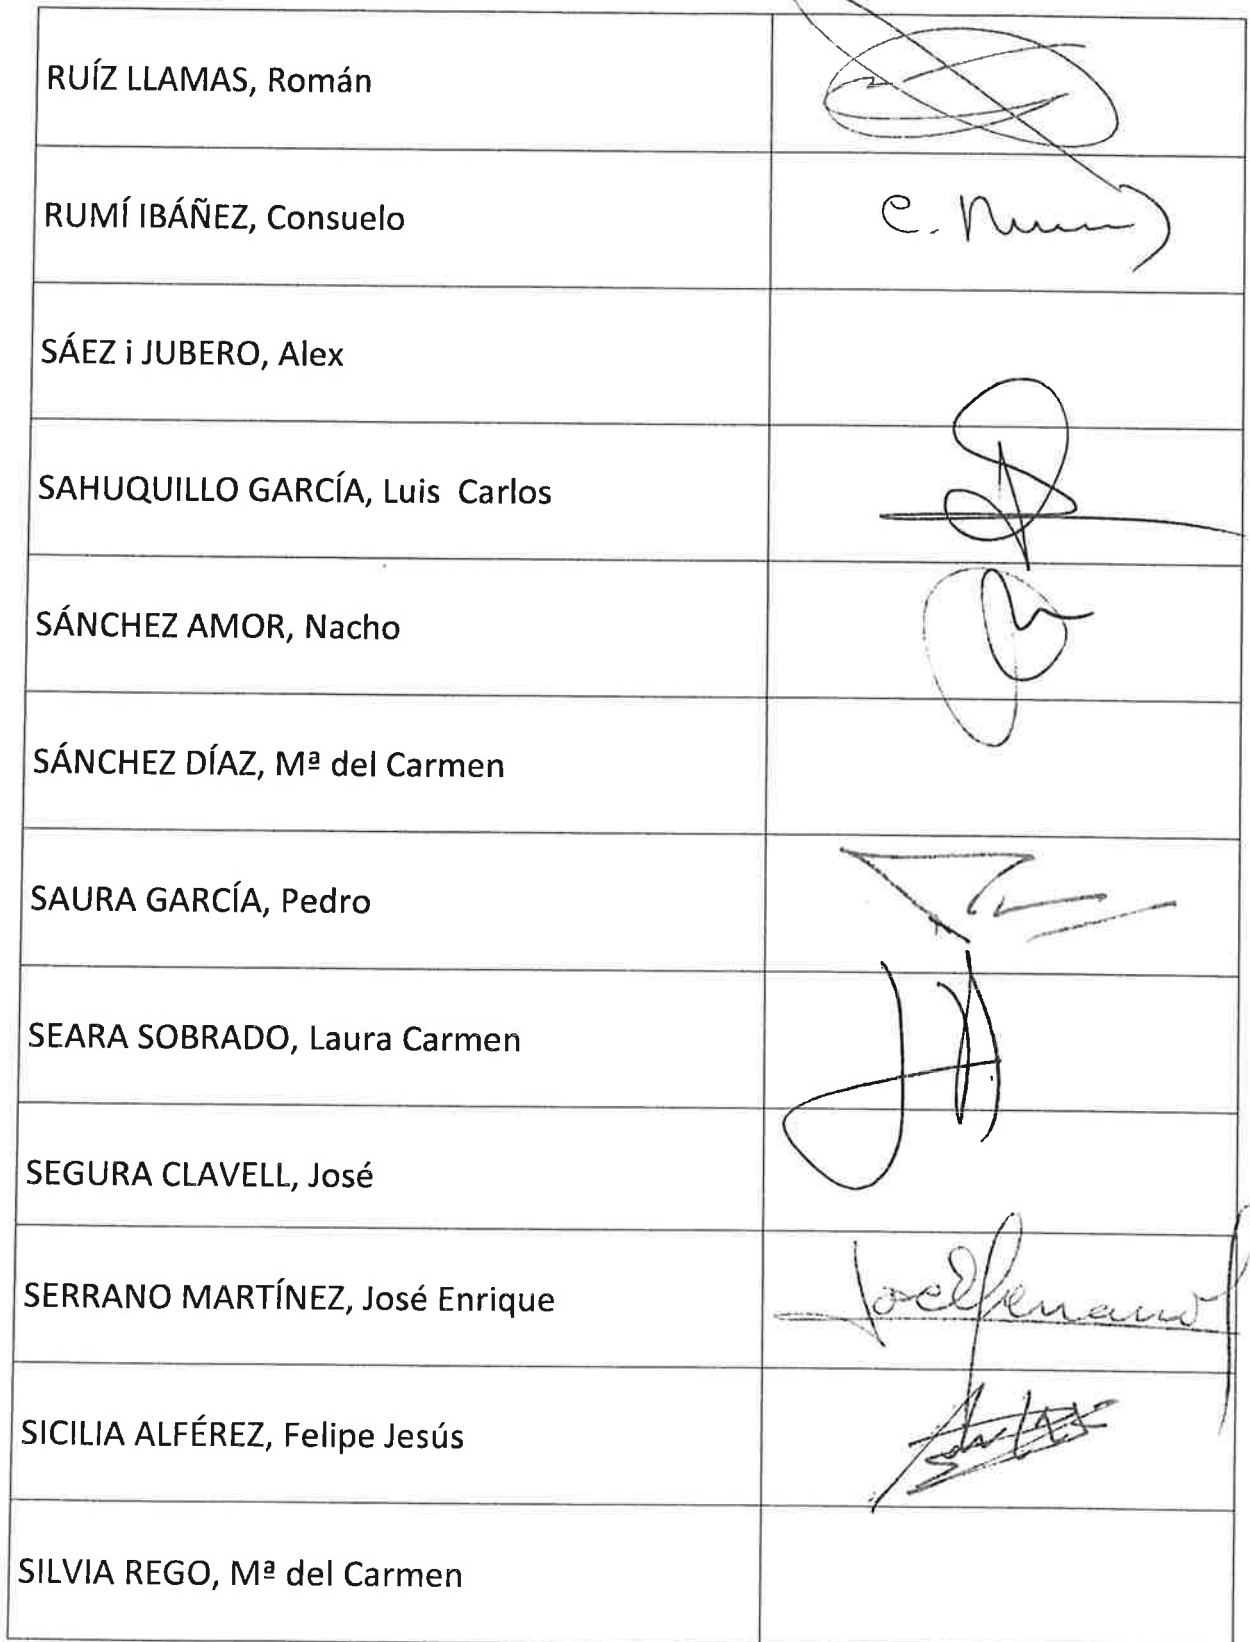 RUÍZ LLAMAS, Román
RUMÍ IBÁÑEZ, Consuelo
SÁEZ i JUBERO, Alex
SAHUQUILLO GARCÍA, Luis Carlos
SÁNCHEZ AMOR, Nacho
SÁNCHEZ DÍAZ, Mª del Carmen
SAURA GARCÍA, Pedro
SEARA SOBRADO, Laura Carmen
SEGURA CLAVELL, José
SERRANO MARTÍNEZ, José Enrique
SICILIA ALFÉREZ, Felipe Jesús
SILVIA REGO, Mª del Carmen